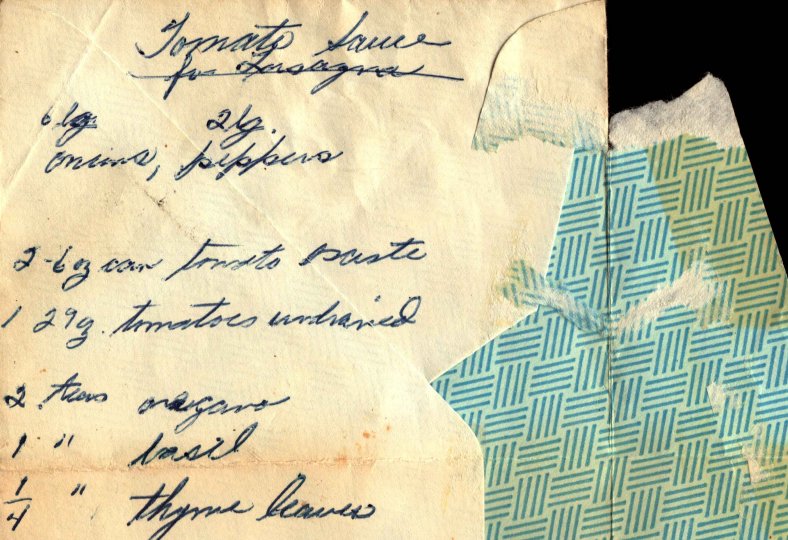 Tomato Sauce
for Lasagna
6 lg 2 lg.
onions, peppers
2-6 oz can tomato paste
1 29 oz. tomatoes undrained
2 teas oregano
1 " basil
1/4 " thyme leaves